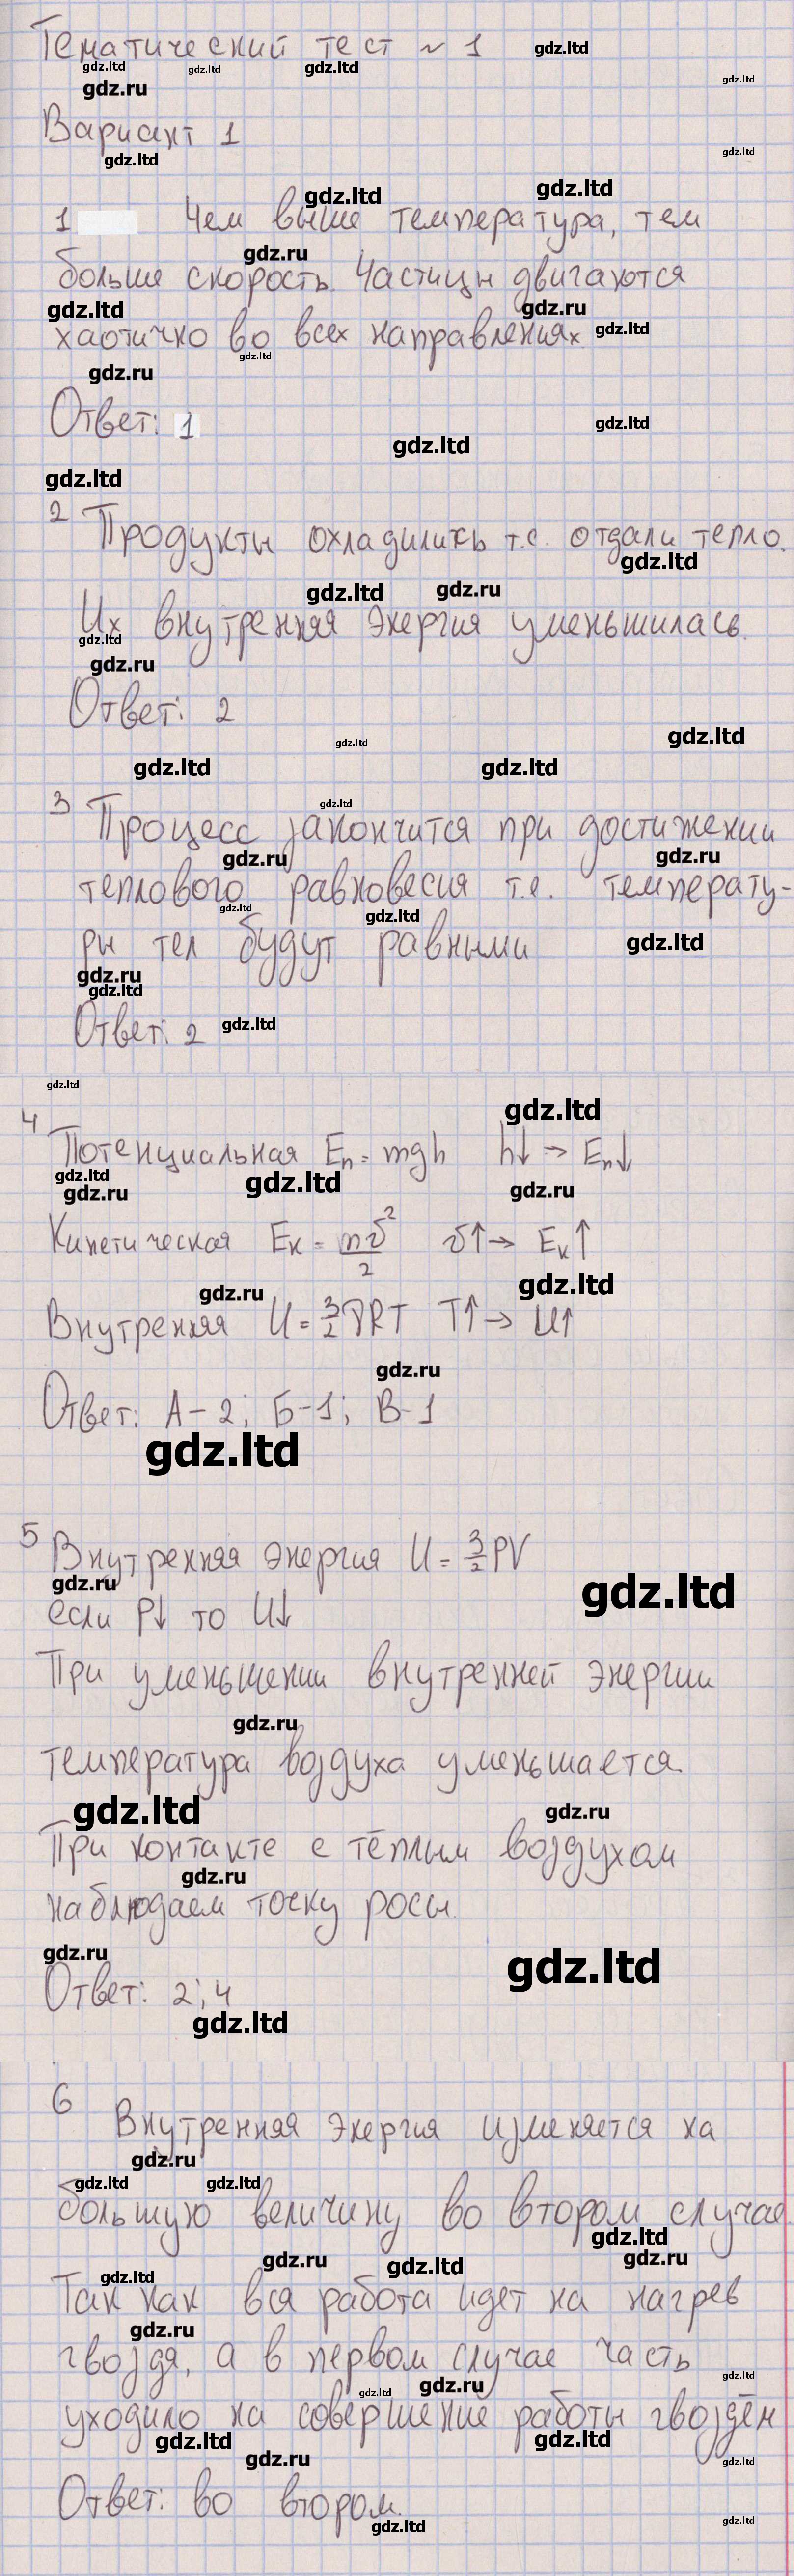 Тематический тест ~ 1
Вариант 1
1 Чем выше температура, тем
больше скорость. Частицы двигаются
хаотично во всех направлениях
Ответ: 1
2 Продукты охладились т.е. отдали тепло.
Их внутренняя энергия уменьшилась.
Ответ: 2
3 Процесс закончится при достижении
теплового равновесия т.е. температу-
ры тел будут равными
Ответ: 2
4 Потенциальная Eп = mgh h↓ → Eп↓
Кинетическая Eк = mv²/2 v↑ → Eк↑
Внутренняя U = 3/2 νRT T↑ → U↑
Ответ: А-2; Б-1; В-1
5 Внутренняя энергия U = 3/2 PV
если P↓ то U↓
При уменьшении внутренней энергии
температура воздуха уменьшается.
При контакте с тёплым воздухом
наблюдаем точку росы.
Ответ: 2; 4
6 Внутренняя энергия изменяется на
большую величину во втором случае.
Так как вся работа идет на нагрев
гвоздя, а в первом случае часть
уходило на совершение работы гвоздём
Ответ: во втором.
gdz.ltd
gdz.ru